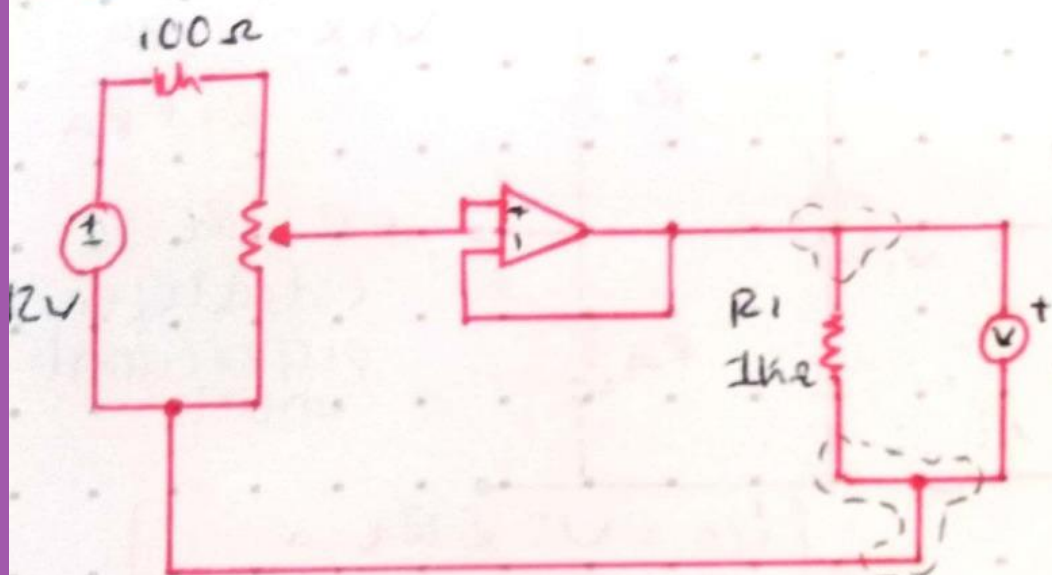 100Ω
1
12V
+
-
R1
1kΩ
V
+